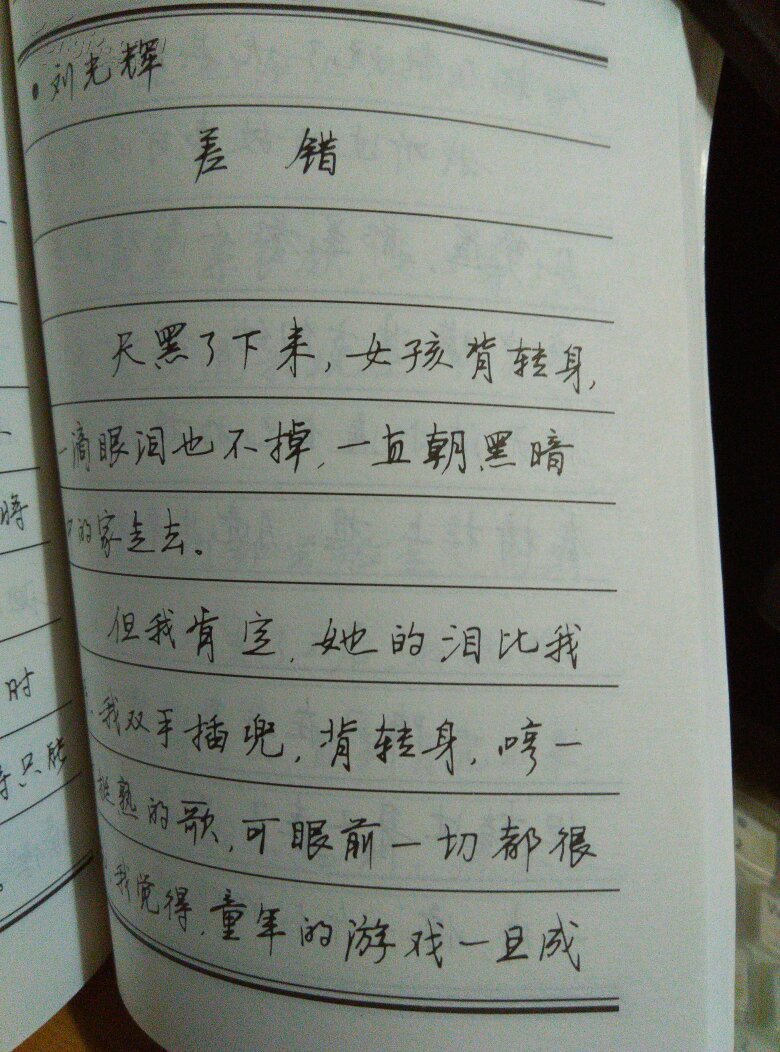 ·刘光辉
差 错
天黑了下来，女孩背转身，
一滴眼泪也不掉，一直朝黑暗
的家走去。
但我肯定，她的泪比我
我双手插兜，背转身，哼一
熟的歌，可眼前一切都很
我觉得，童年的游戏一旦成
时
只能